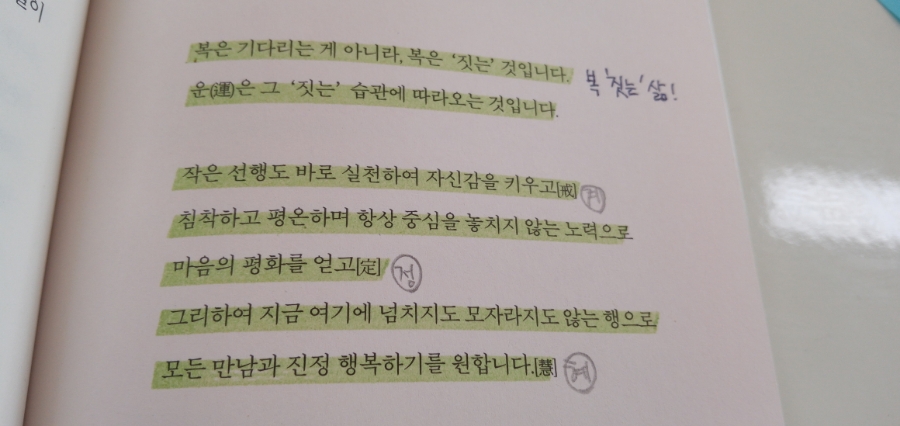 복은 기다리는 게 아니라, 복은 ‘짓는’ 것입니다.
복 '짓는' 삶!
운(運)은 그 ‘짓는’ 습관에 따라오는 것입니다.
작은 선행도 바로 실천하여 자신감을 키우고[戒]
계
침착하고 평온하며 항상 중심을 놓치지 않는 노력으로
마음의 평화를 얻고[定]
정
그리하여 지금 여기에 넘치지도 모자라지도 않는 행으로
모든 만남과 진정 행복하기를 원합니다.[慧]
혜